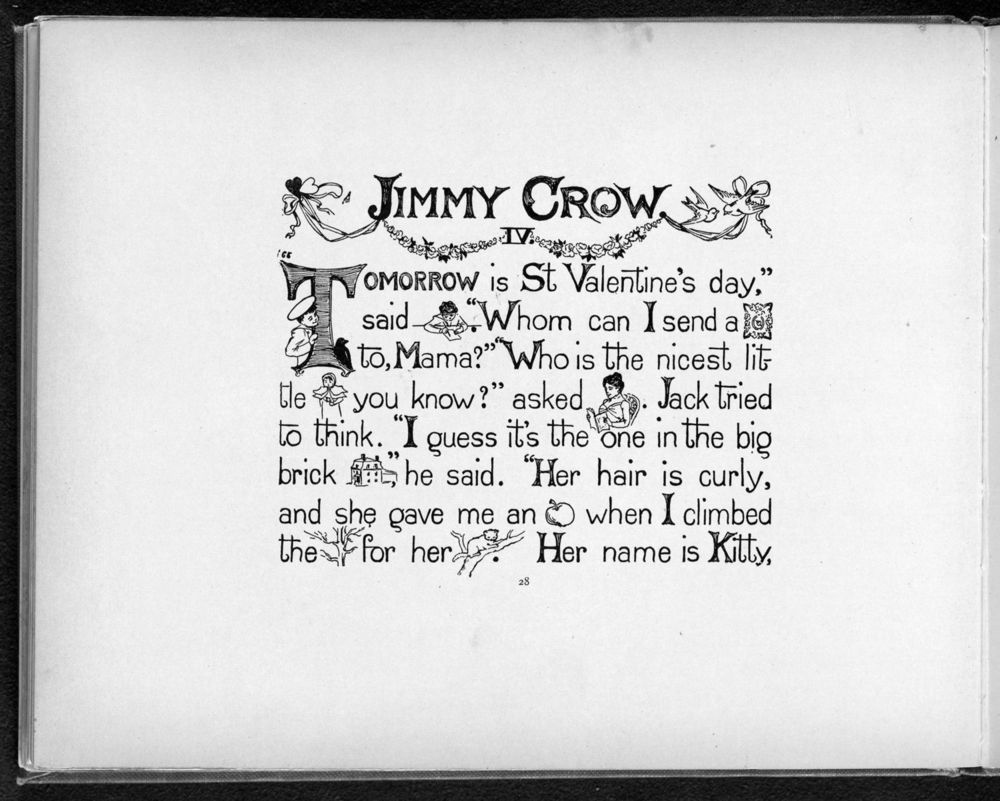 JIMMY CROW.
IV.
"TOMORROW is St Valentine's day,"
said . "Whom can I send a
to, Mama?" "Who is the nicest lit-
tle you know?" asked . Jack tried
to think. "I guess it's the one in the big
brick ," he said. "Her hair is curly,
and she gave me an when I climbed
the for her . Her name is Kitty,
28